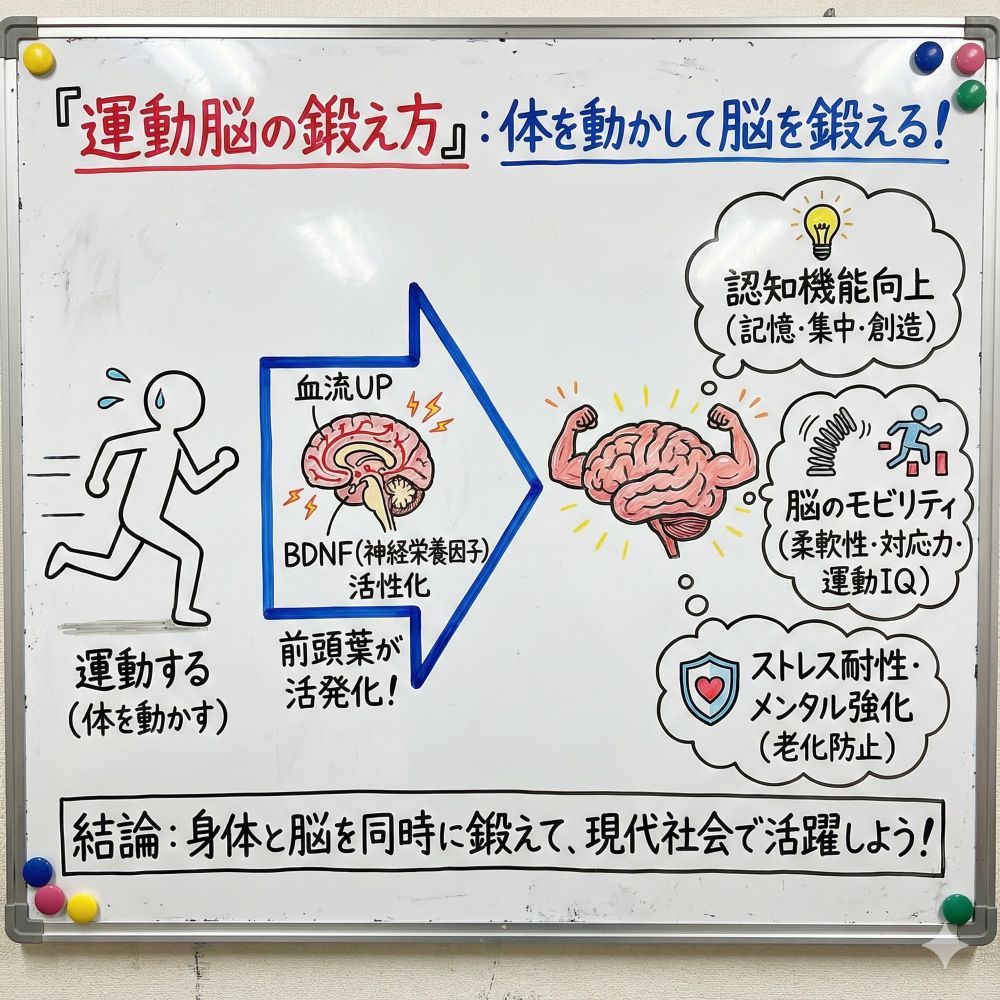 『運動脳の鍛え方』：体を動かして脳を鍛える！
認知機能向上
（記憶・集中・創造）
血流UP
BDNF（神経栄養因子）
活性化
前頭葉が
活発化！
運動する
（体を動かす）
脳のモビリティ
（柔軟性・対応力・
運動IQ）
ストレス耐性・
メンタル強化
（老化防止）
結論：身体と脳を同時に鍛えて、現代社会で活躍しよう！